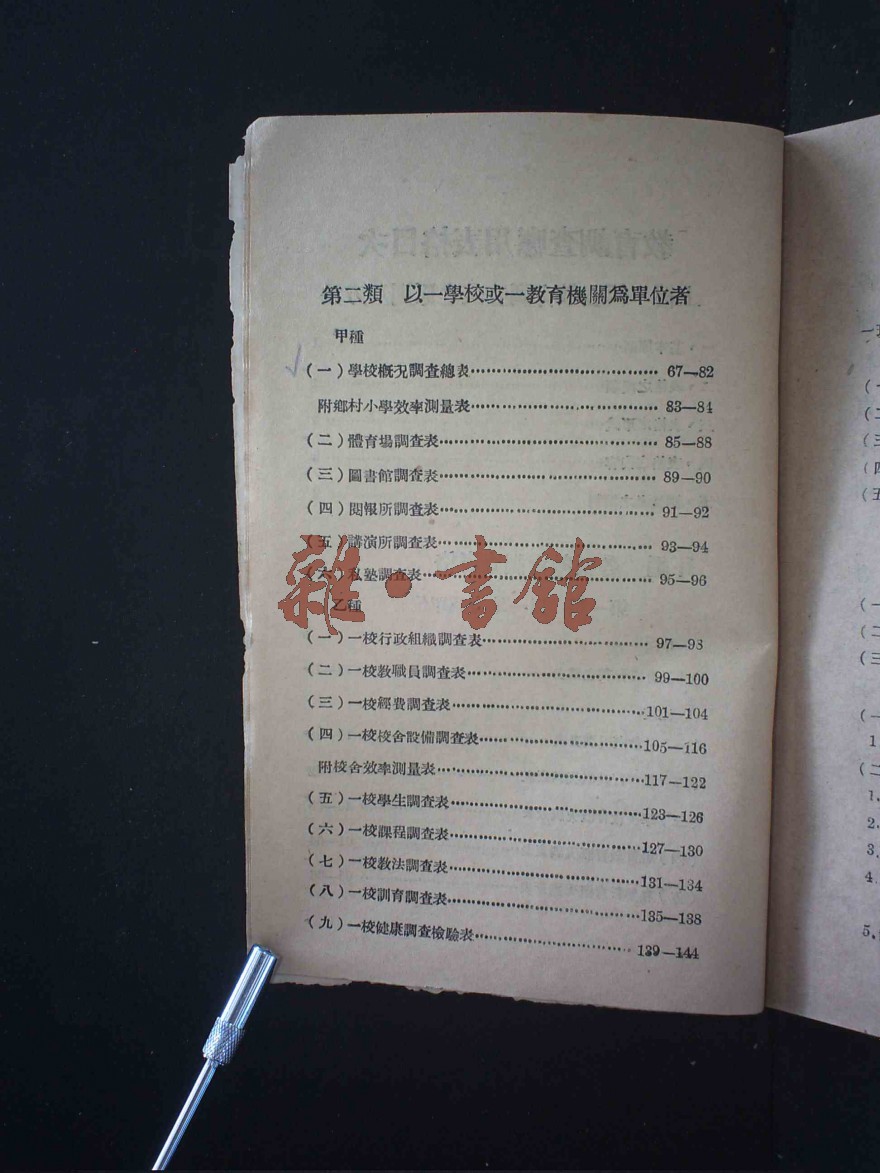 第二類　以一學校或一教育機關爲單位者
甲種
(一)學校概況調查總表 67—82
附鄉村小學效率測量表 83—84
(二)體育場調查表 85—88
(三)圖書館調查表 89—90
(四)閱報所調查表 91—92
(五)講演所調查表 93—94
(六)私塾調查表 95—96
雜·書館
乙種
(一)一校行政組織調查表 97—98
(二)一校教職員調查表 99—100
(三)一校經費調查表 101—104
(四)一校校舍設備調查表 105—116
附校舍效率測量表 117—122
(五)一校學生調查表 123—126
(六)一校課程調查表 127—130
(七)一校教法調查表 131—134
(八)一校訓育調查表 135—138
(九)一校健康調查檢驗表 139—144
(二
(三
(四
(五
(一
(二
(三
(一
1
(二
1.
2.
3.
4.
5.